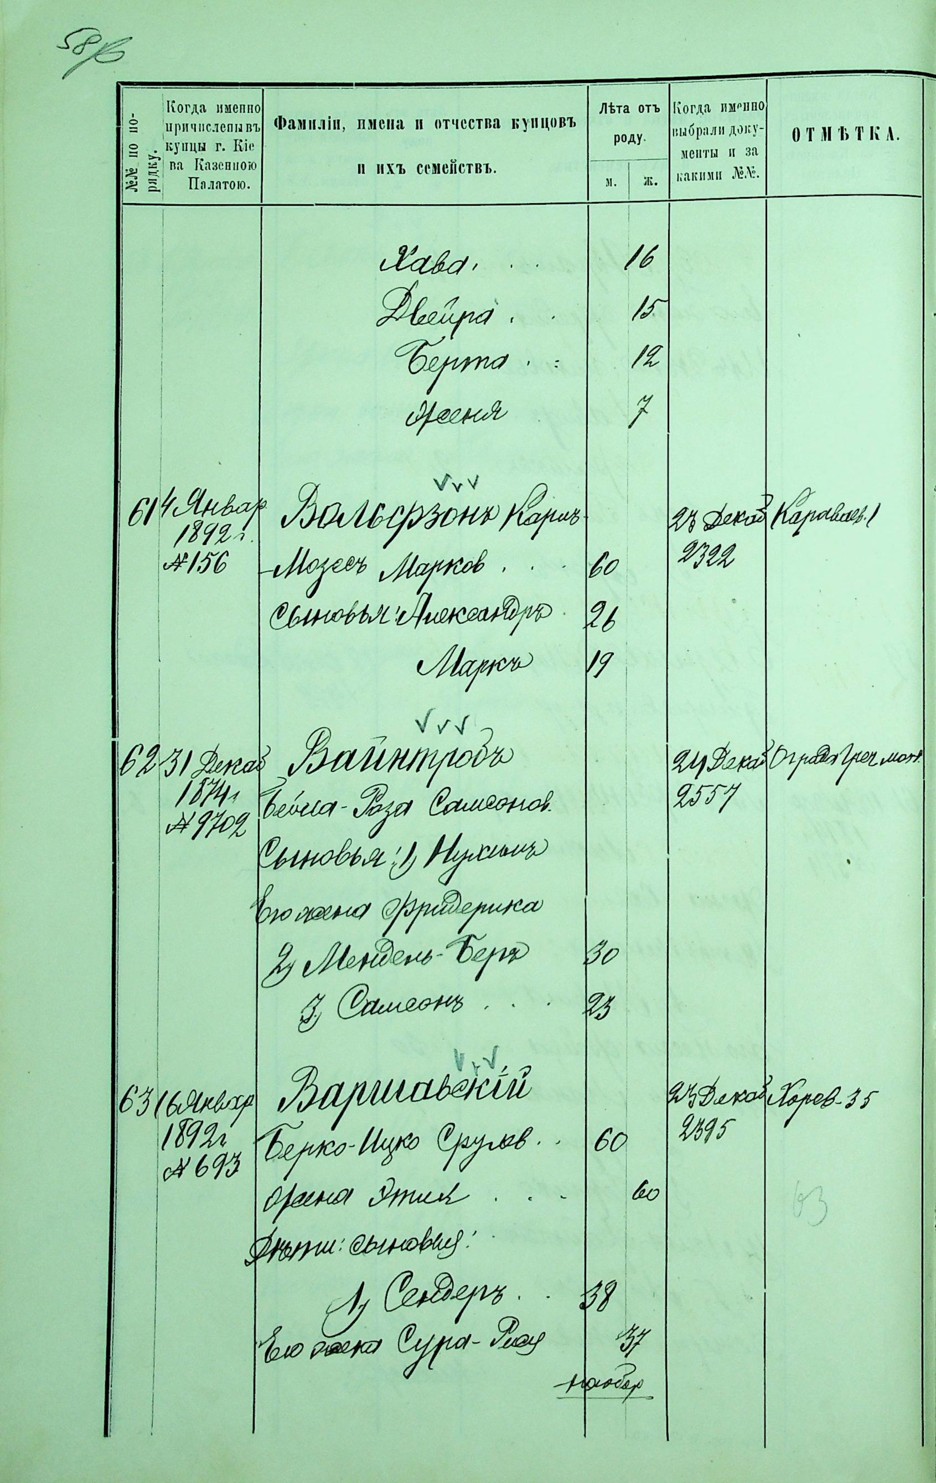 58
№№ по по-
рядку.
Когда именно
причислены въ
купцы г. Кіе
ва Казенною
Палатою.
Фамиліи, имена и отчества купцовъ
и ихъ семействъ.
Лѣта отъ
роду.
м. ж.
Когда именно
выбрали доку-
менты и за
какими №№.
ОТМѢТКА.
Хава. 16
Двейра 15
Берта 12
Женя 7
61 4 Январ Вольфзонъ Карлъ- 23 Декаб Караваев. 1
1892 г. 2322
№ 156 -Мозесъ Марков 60
Сыновья: Александръ 26
Маркъ 19
62 31 Декаб Вайнтробъ 24 Декаб
1874 г. Бейла-Роза Самсонов. 2557
№ 9702
Сыновья: 1) Нухимъ
Его жена Фридерика
2) Мендель-Беръ 30
3) Самсонъ 23
63 16 Январ Варшавскій 23 Декаб Хорев-35
1892 г. Берко-Ицко Срулев. 60 2395
№ 693
Жена Этля 60
Дѣти: сыновья:
1) Сендеръ 38
Его жена Сура-Рися 37
63